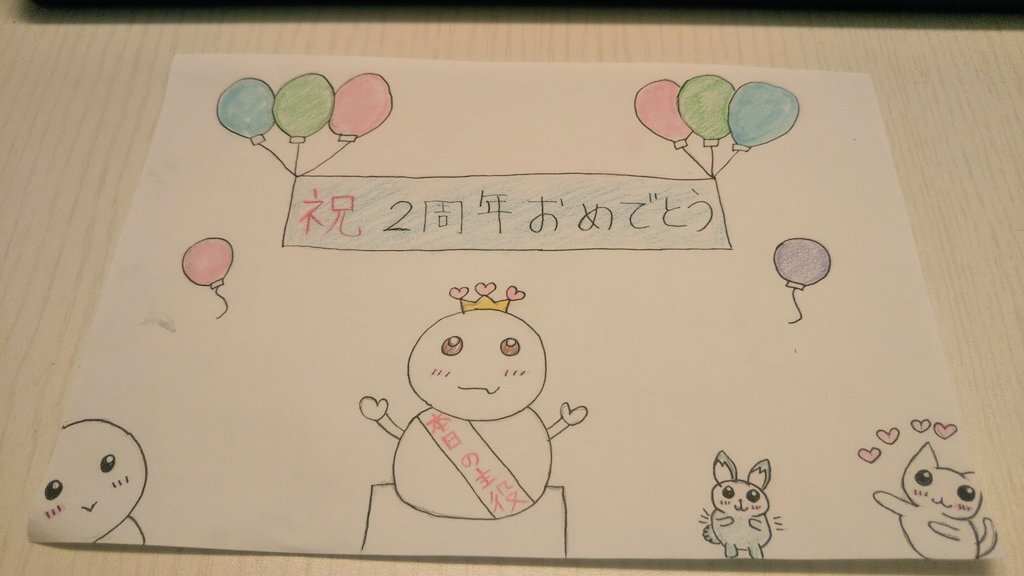 祝 2周年おめでとう
本日の主役